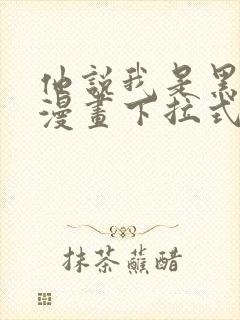 他說我是黑
漫畫下拉式
抹茶蘸醋